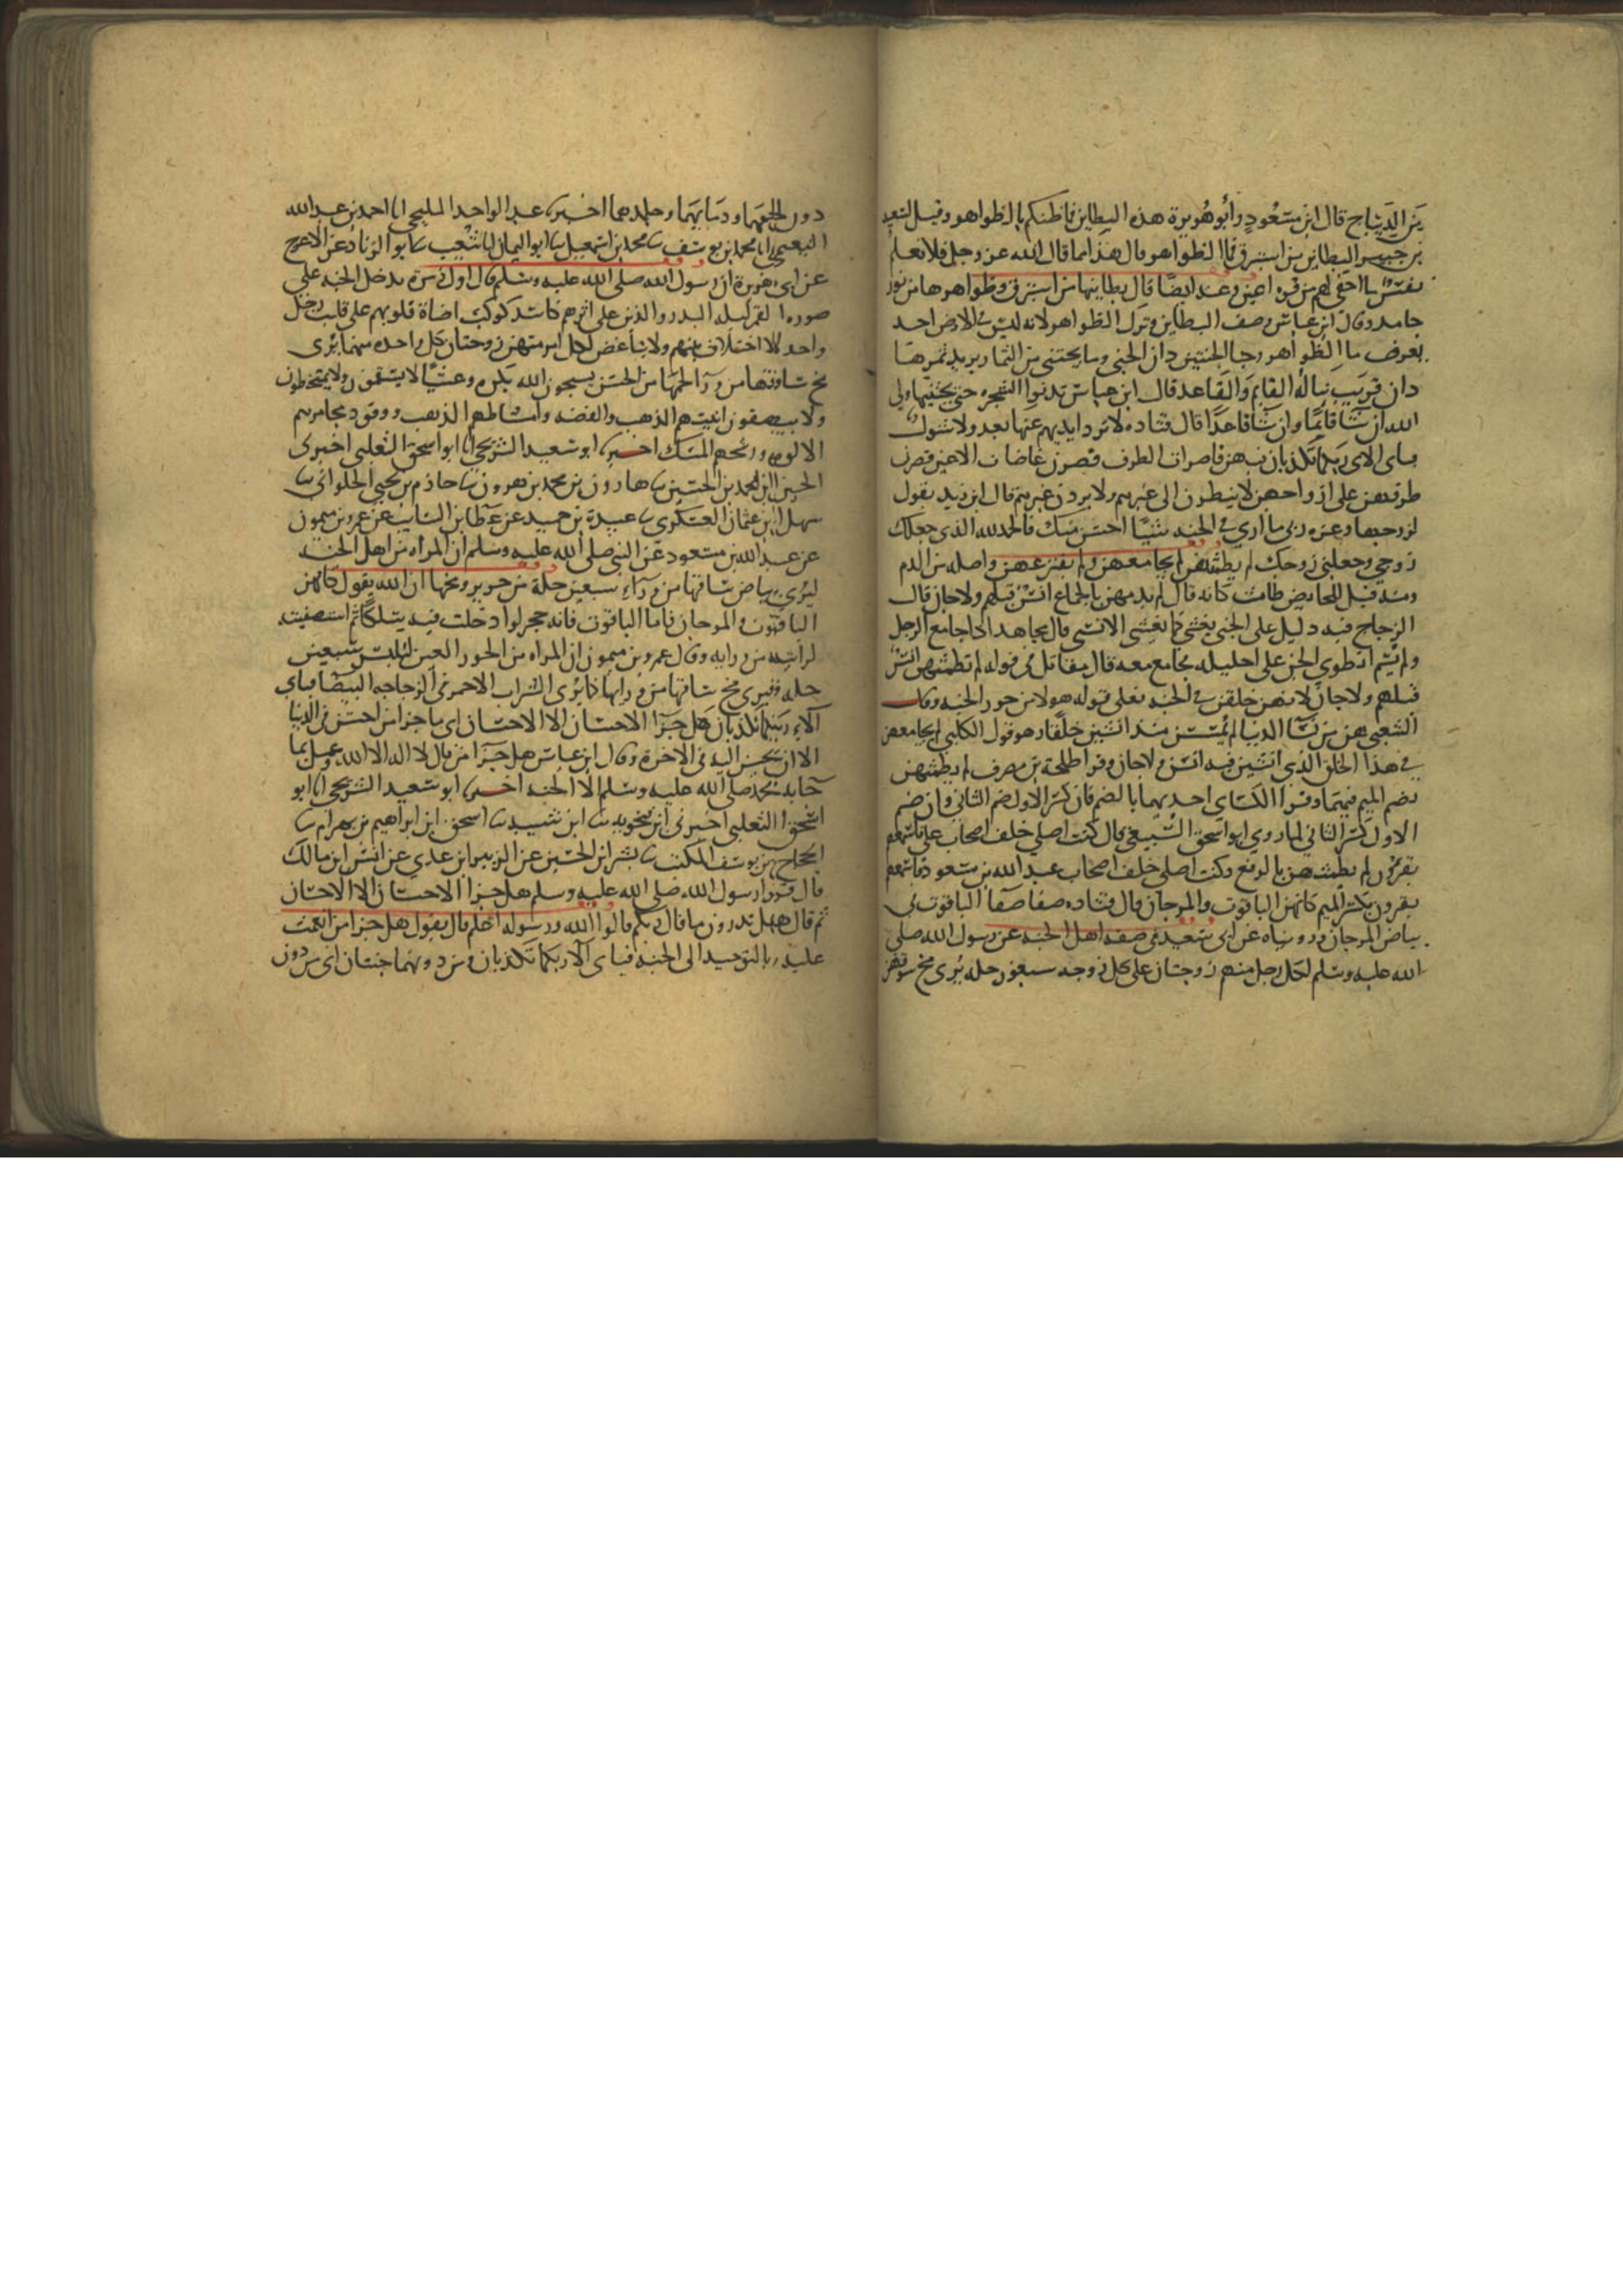 من الديباج قال ابن مسعود وأبو هويرة هذه البطاين فاظنكم بالظواهر وقيل لسعيد
بن جبير البطاين من استبرق فما الظواهر قال هذا مما قال الله عز وجل فلا تعلم
نفس ما اخفي لهم من قرة اعين وعنه ايضا قال بطاينها من استبرق وظواهرها من نور
جامد وقال ابن عباس وصف البطاين وترك الظواهر لانه ليس في الارض احد
يعرف ما الظواهر وجنا الجنتين دان الجنى وما يجتنى من الثمار يريد ثمرها
دان قريب يناله القايم والقاعد قال ابن عباس تدنوا الشجره حتى يجتنيها ولي
الله ان شا قايما وان شا قاعدا قال قتاده لا ترد ايديهم عنها بعد ولا شوك
فباى الاى ربكما تكذبان فيهن قاصرات الطرف قصرن غاضات الاعين قصرن
طرفهن على ازواجهن لا ينظرون الى غيرهم ولا يردن غيرهم قال ابن زيد يقول
لزوجها وعزه ربى ما اري في الجنه شيا احسن منك فالحمد لله الذي جعلك
زوجي وجعلني زوجك لم يطمثهن لم يجامعهن ولم يفترعهن واصله من الدم
ومنه قيل للحايض طامث كانه قال لم يدمهن بالجماع انس قبلهم ولا جان قال
الزجاج فيه دليل على الجنى يغشى كما يغشى الانسى قال مجاهد اذا جامع الرجل
ولم يسم انطوي الجن على احليله فجامع معه قال مقاتل في قوله لم يطمثهن انس
قبلهم ولا جان لانهن خلقن في الجنه فعلى قوله هولا من حور الجنه وقال
الشعبي هن من نسا الدنيا لم يمسسن منذ انشين خلقا وهو قول الكلبي لم يجامعهن
في هذا الخلق الذي انشين فيه انس ولا جان وقرا طلحة بن مصرف لم يطمثهن
بضم الميم فيهما وقرا الكساي احديهما بالضم فان كسر الاول ضم الثاني وان ضم
الاول كسر الثاني لما روي ابو اسحق السبيعي قال كنت اصلي خلف اصحاب علي فاسمعهم
يقرؤن لم يطمثهن بالرفع وكنت اصلي خلف اصحاب عبد الله بن مسعود فاسمعهم
يقرون بكسر الميم كانهن الياقوت والمرجان قال قتاده صفا صفا الياقوت في
بياض المرجان وروىناه عن ابى سعيد في صفه اهل الجنه عن رسول الله صلى
الله عليه وسلم لكل رجل منهم زوجتان على كل زوجه سبعون حله يرى مخ سوقهن
دون لحمهما ودمايهما وجلدهما اخبرنا عبد الواحد المليحي انا احمد بن عبد الله
النعيمي انا محمد بن يوسف ثنا محمد بن اسمعيل ثنا ابو اليمان انا شعيب ثنا ابو الزناد عن الاعرج
عن ابى هريرة ان رسول الله صلى الله عليه وسلم قال اول زمرة يدخل الجنه على
صوره القمر ليله البدر والذين على اثرهم كاشد كوكب اضاة قلوبهم على قلب رجل
واحد لا اختلاف بينهم ولا تباغض لكل امر منهم زوجتان كل واحده منهما يرى
مخ ساقها من ورا لحمها من الحسن يسبحون الله بكرة وعشيا لا يسقمون ولا يمتخطون
ولا يبصقون انيتهم الذهب والفضه وامشاطهم الذهب ووقود مجامرهم
الالوه ورشحهم المسك اخبرنا ابو سعيد الشريحي انا ابو اسحق الثعلبي اخبرنى
الحسين ابن محمد بن الحسين ثنا هارون بن محمد بن هرون ثنا حازم بن يحيى الحلواني ثنا
سهل ابن عثمان العسكري ثنا عبيدة بن حميد عن عطا بن السايب عن عمرو بن ميمون
عن عبد الله بن مسعود عن النبي صلى الله عليه وسلم ان المراه من اهل الجنه
ليرى بياض ساقها من ورآء سبعين حلة من حرير ومخها ان الله يقول كانهن
الياقوت والمرجان فاما الياقوت فانه حجر لوا دخلت فيه سلكا ثم استصفيته
لرايته من ورايه وقال عمرو بن ميمون ان المراه من الحور العين لتلبس سبعين
حله فيرى مخ ساقها من ورايها كما يرى الشراب الاحمر في الزجاجه البيضا فباي
آلاء ربكما تكذبان هل جزا الاحسان الا الاحسان اي ما جزا من احسن في الدنيا
الا ان يحسن اليه فى الاخرة وقال ابن عباس هل جزا من قال لا اله الا الله وعمل بما
جا به محمد صلى الله عليه وسلم الا الجنه اخبرنا ابو سعيد الشريحي انا ابو
اسحق الثعلبي اخبرنى ابن فنجويه ثنا ابن شيبه ثنا اسحق ابن ابراهيم بن بهرام ثنا
الحجاج بن يوسف المكتب ثنا بشر ابن الحسين عن الزبير ابن عدي عن انس ابن مالك
قال قرا رسول الله صلى الله عليه وسلم هل جزا الاحسان الا الاحسان
ثم قال هل تدرون ما قال ربكم قالوا الله ورسوله اعلم قال يقول هل جزا من انعمت
عليه بالتوحيد الى الجنه فباى آلا ربكما تكذبان ومن دونهما جنتان اى من دون